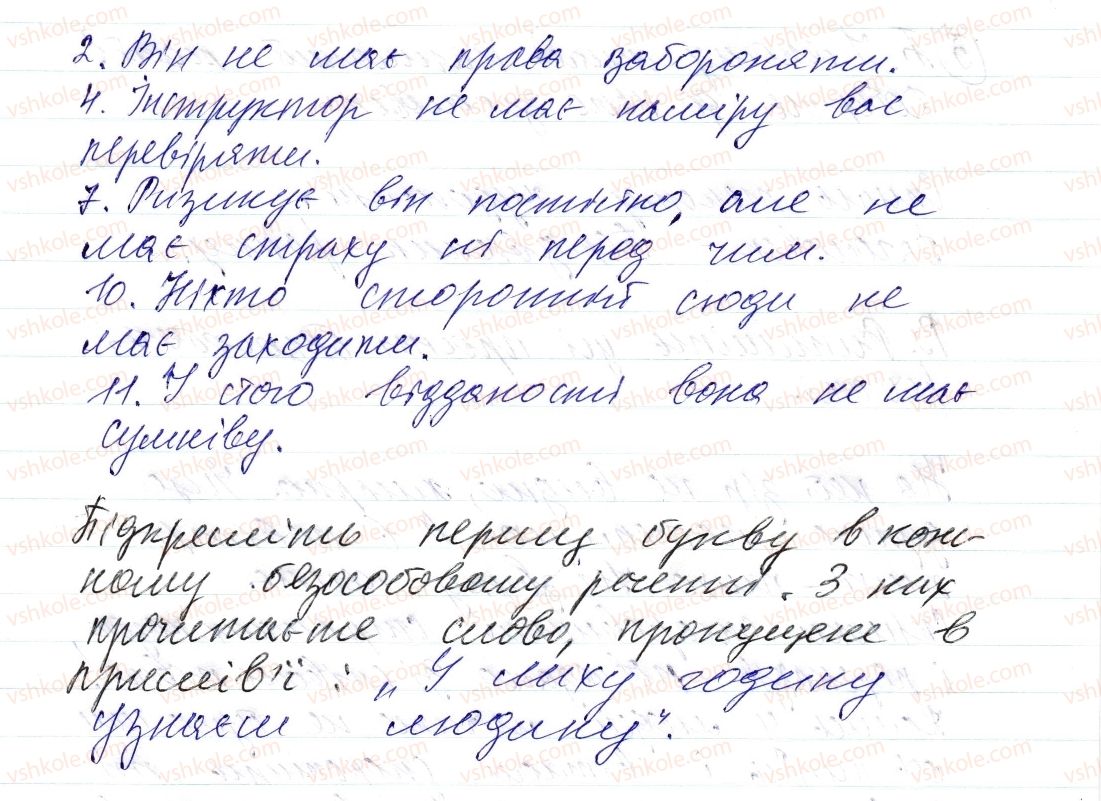 2. Він не має права забороняти.
4. Інструктор не має наміру вас
перевіряти.
7. Ризикує він постійно, але не
має страху ні перед чим.
10. Ніхто сторонній сюди не
має заходити.
11. У його відданості вона не має
сумніву.
Підкресліть першу букву в кож-
ному безособовому реченні. З них
прочитаєте слово, пропущене в
прислів'ї: „У лиху годину
узнаєш людину".